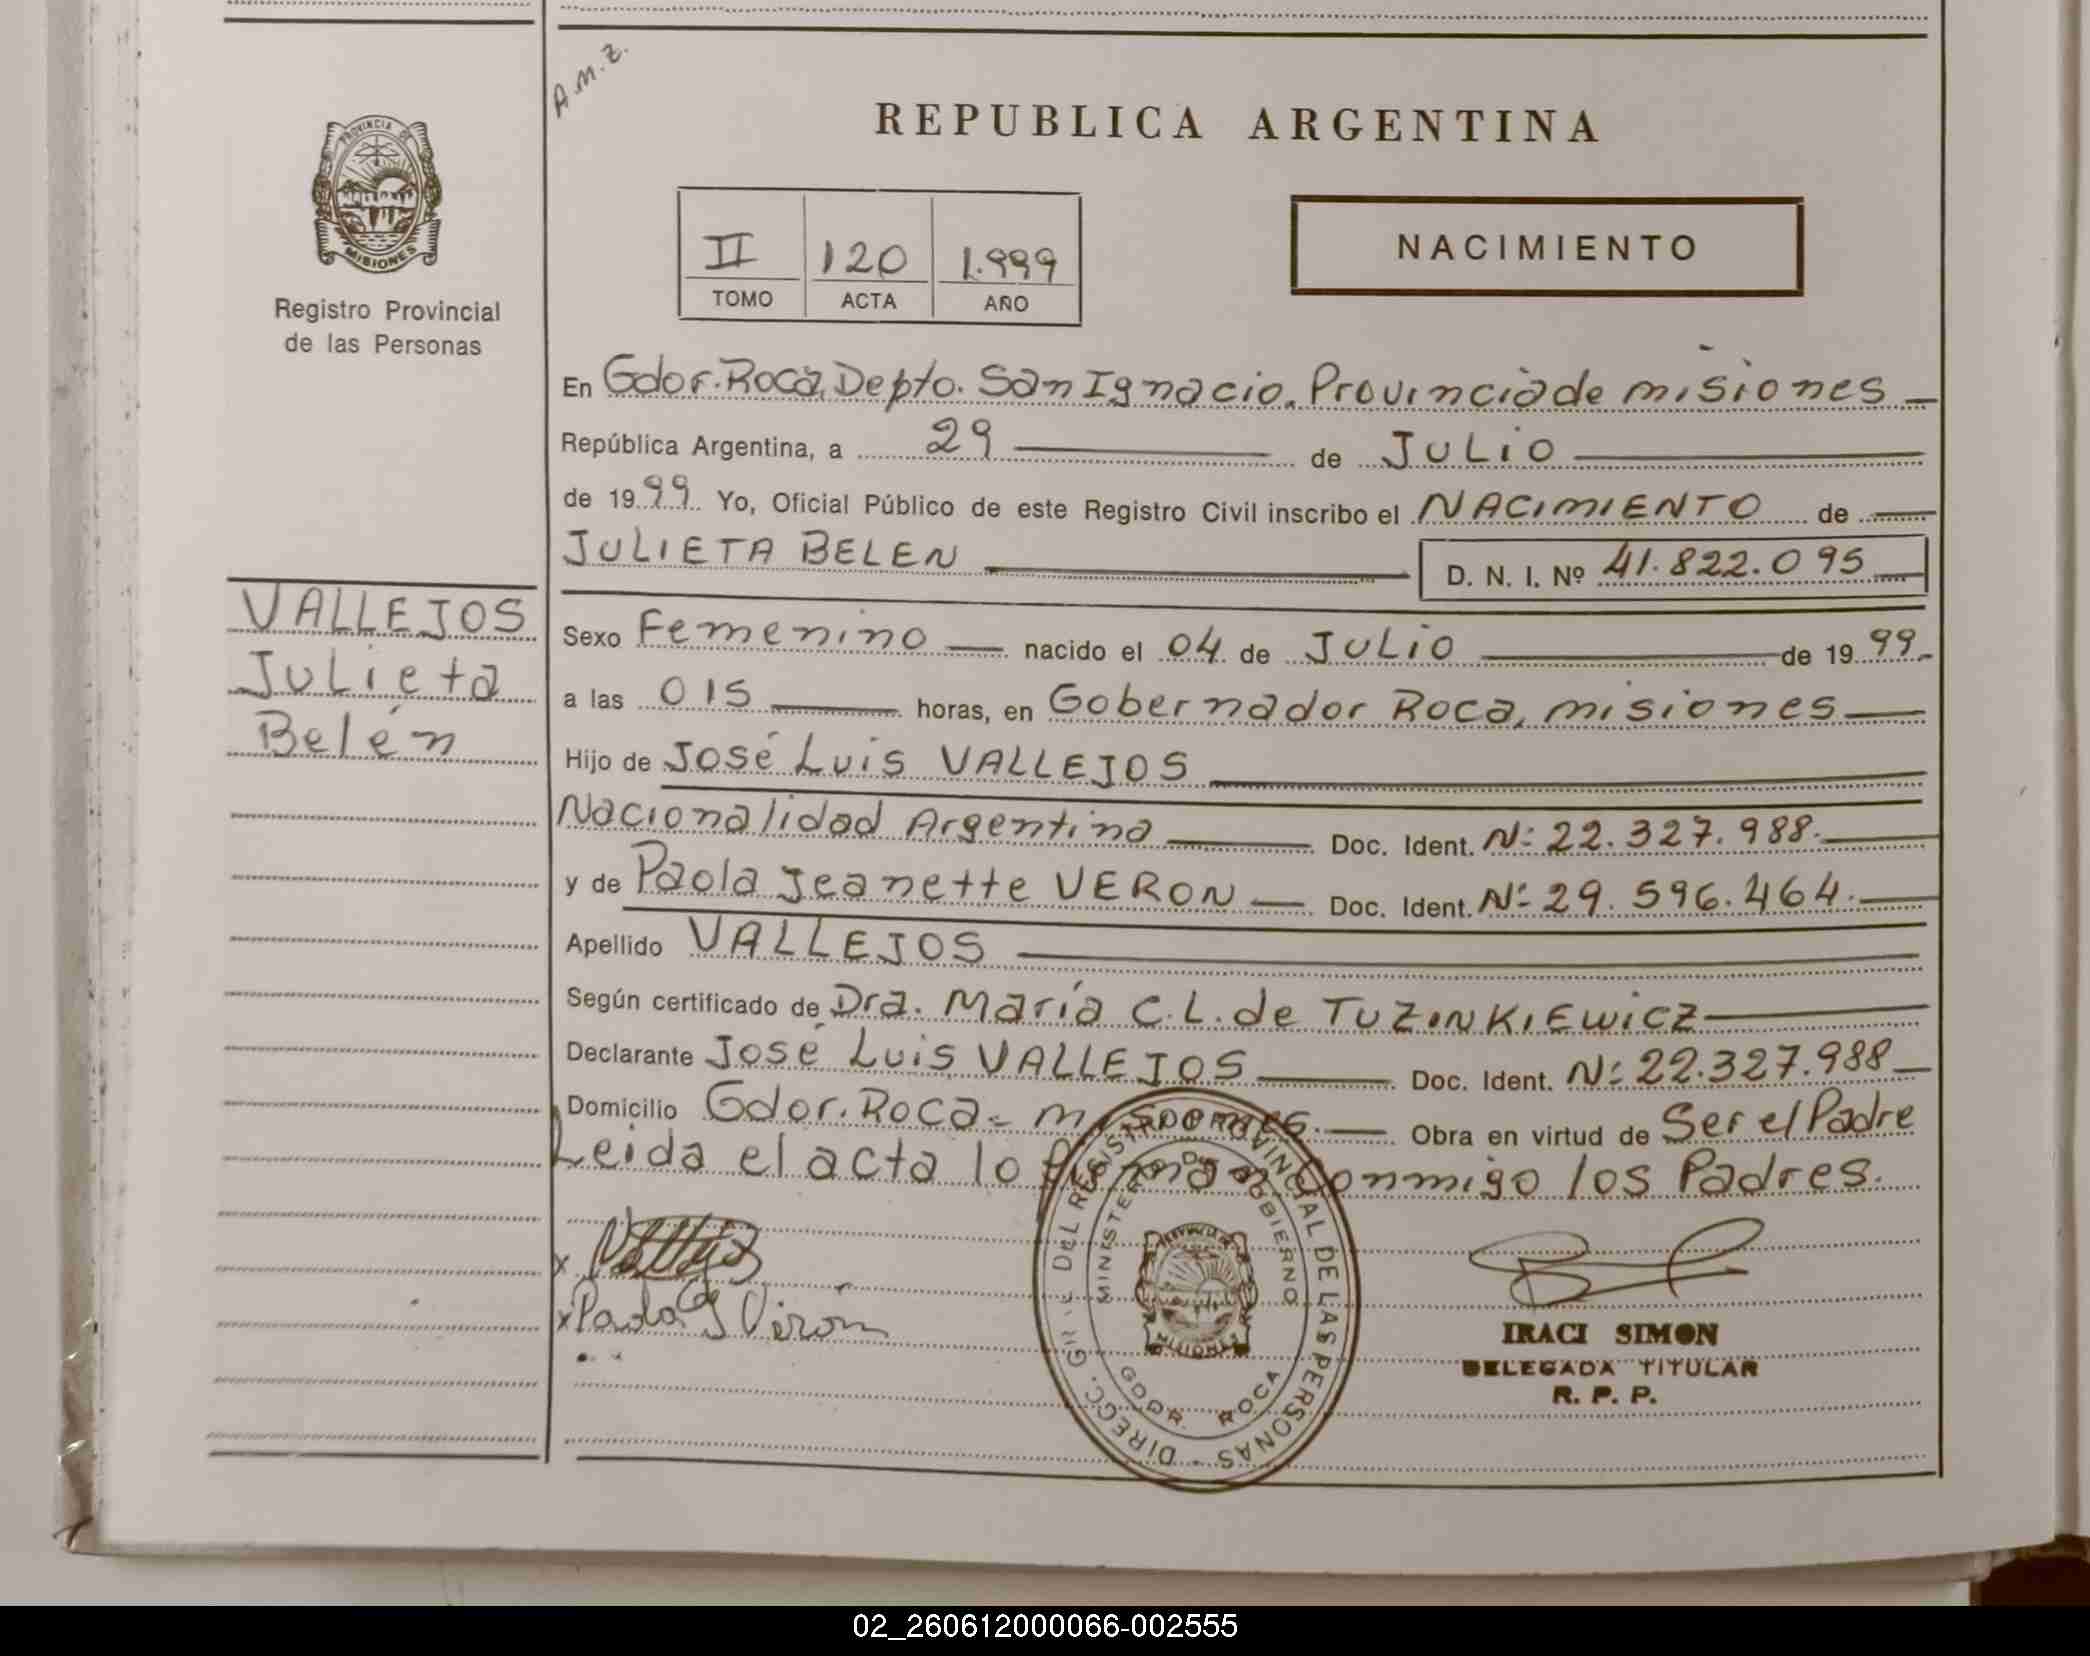 A.M.Z.
PROVINCIA DE
MISIONES
Registro Provincial
de las Personas
REPUBLICA ARGENTINA
II 120 1.999
TOMO ACTA AÑO
NACIMIENTO
En Gdor. Roca, Depto. San Ignacio, Provincia de misiones
República Argentina, a 29 de JULIO
de 1999 Yo, Oficial Público de este Registro Civil inscribo el NACIMIENTO de
JULIETA BELEN D. N. I. Nº 41.822.095
VALLEJOS
Julieta
Belén
Sexo Femenino nacido el 04 de JULIO de 1999
a las 015 horas, en Gobernador Roca, misiones
Hijo de José Luis VALLEJOS
Nacionalidad Argentina Doc. Ident. Nº 22.327.988.
y de Paola Jeanette VERON Doc. Ident. Nº 29.596.464.
Apellido VALLEJOS
Según certificado de Dra. María C.L. de TUZINKIEWICZ
Declarante José Luis VALLEJOS Doc. Ident. Nº 22.327.988
Domicilio Gdor. Roca - misiones. Obra en virtud de Ser el Padre
Leida el acta lo firman conmigo los Padres.
x Vallejos
x Paola J Verón
DIRECC. DEL REGISTRO PROVINCIAL DE LAS PERSONAS
MINISTERIO DE GOBIERNO
MISIONES
GDOR. ROCA
IRACI SIMON
DELEGADA TITULAR
R. P. P.
02_260612000066-002555